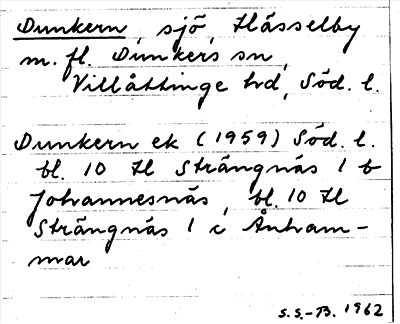 Dunkern, sjö, Hässelby
m. fl. Dunkers sn,
Villåttinge hd, Söd. l.
Dunkern ek (1959) Söd. l.
bl. 10 H Strängnäs 1 b
Johannesnäs, bl. 10 H
Strängnäs 1 c Ånham-
mar
S.S.-B. 1962